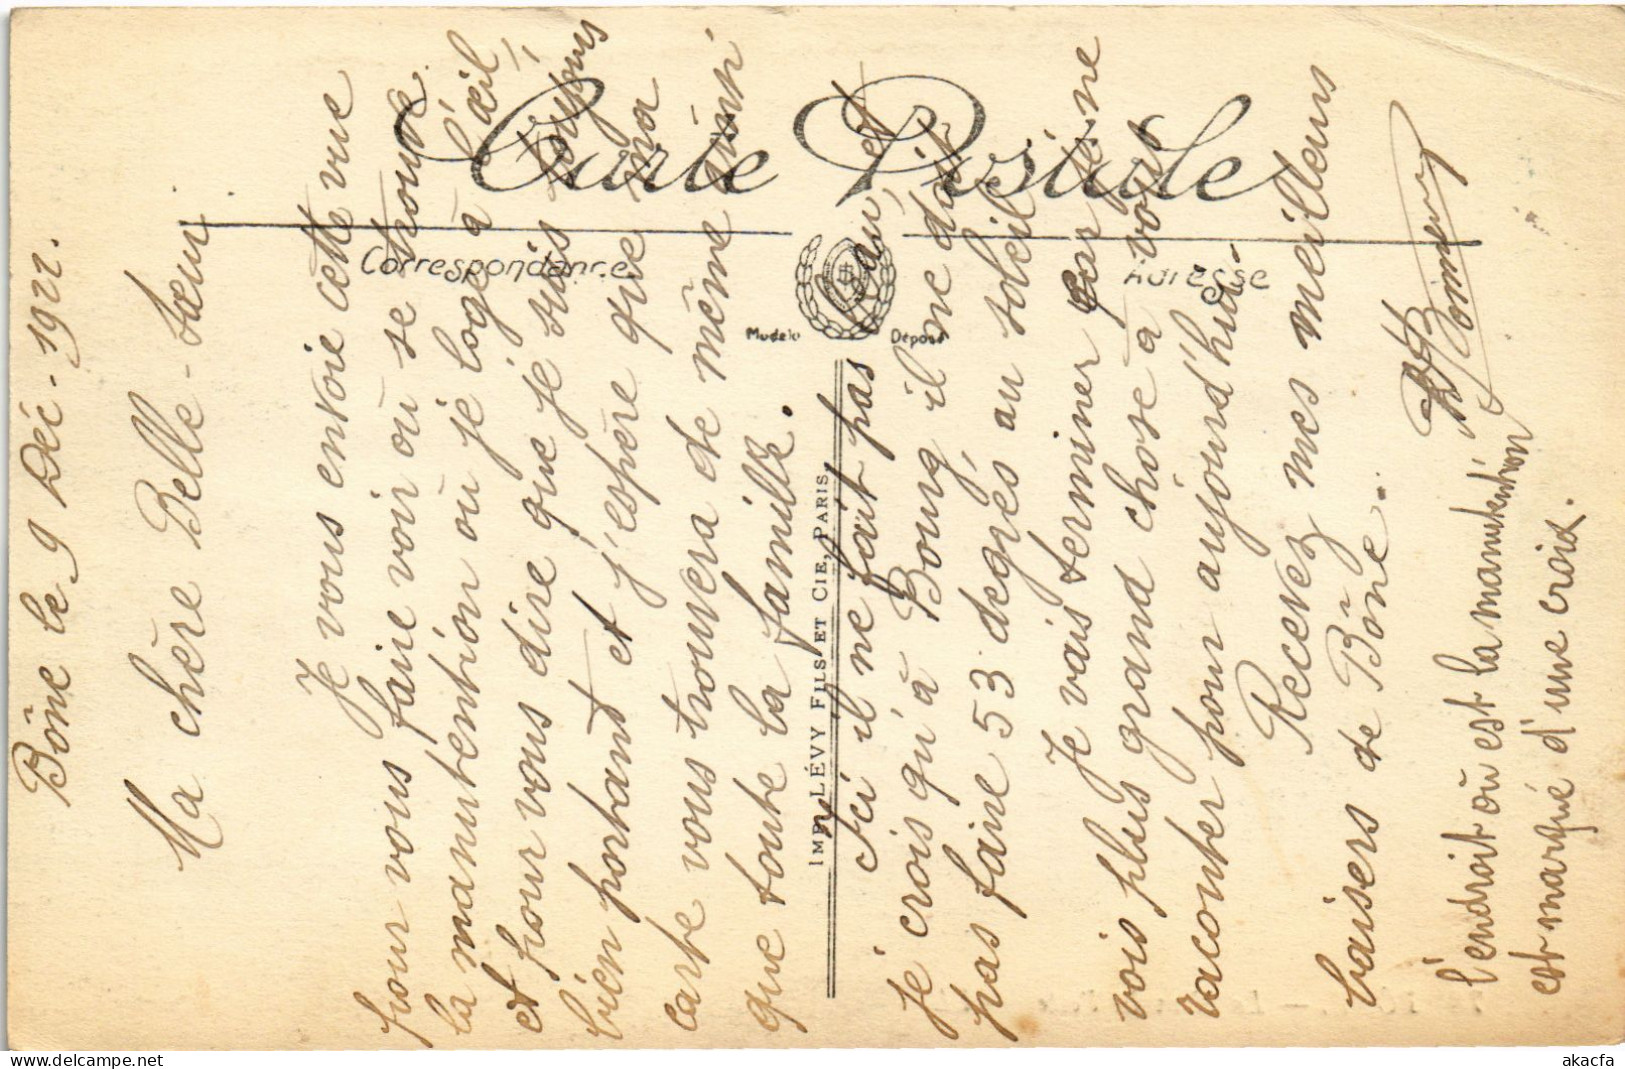 Bône le 9 Déc - 1922.
Ma chère Belle-sœur
Je vous envoie cette vue
pour vous faire voir où se trouve
la manutention où je loge à l'œil,
et pour vous dire que je suis toujours
bien portant et j'espère que ma
carte vous trouvera de même ainsi
que toute la famille.
Ici il ne fait pas
je crois qu'à Bourg il ne doit
pas faire 53 degrés au soleil
Je vais terminer car je ne
vois plus grand chose à vous
raconter pour aujourd'hui.
Recevez mes meilleurs
baisers de Bône.
l'endroit où est la manutention
est marqué d'une croix.
Carte Postale
Correspondance
Adresse
Modèle Déposé
IMP. LÉVY FILS ET CIE, PARIS
akacfa